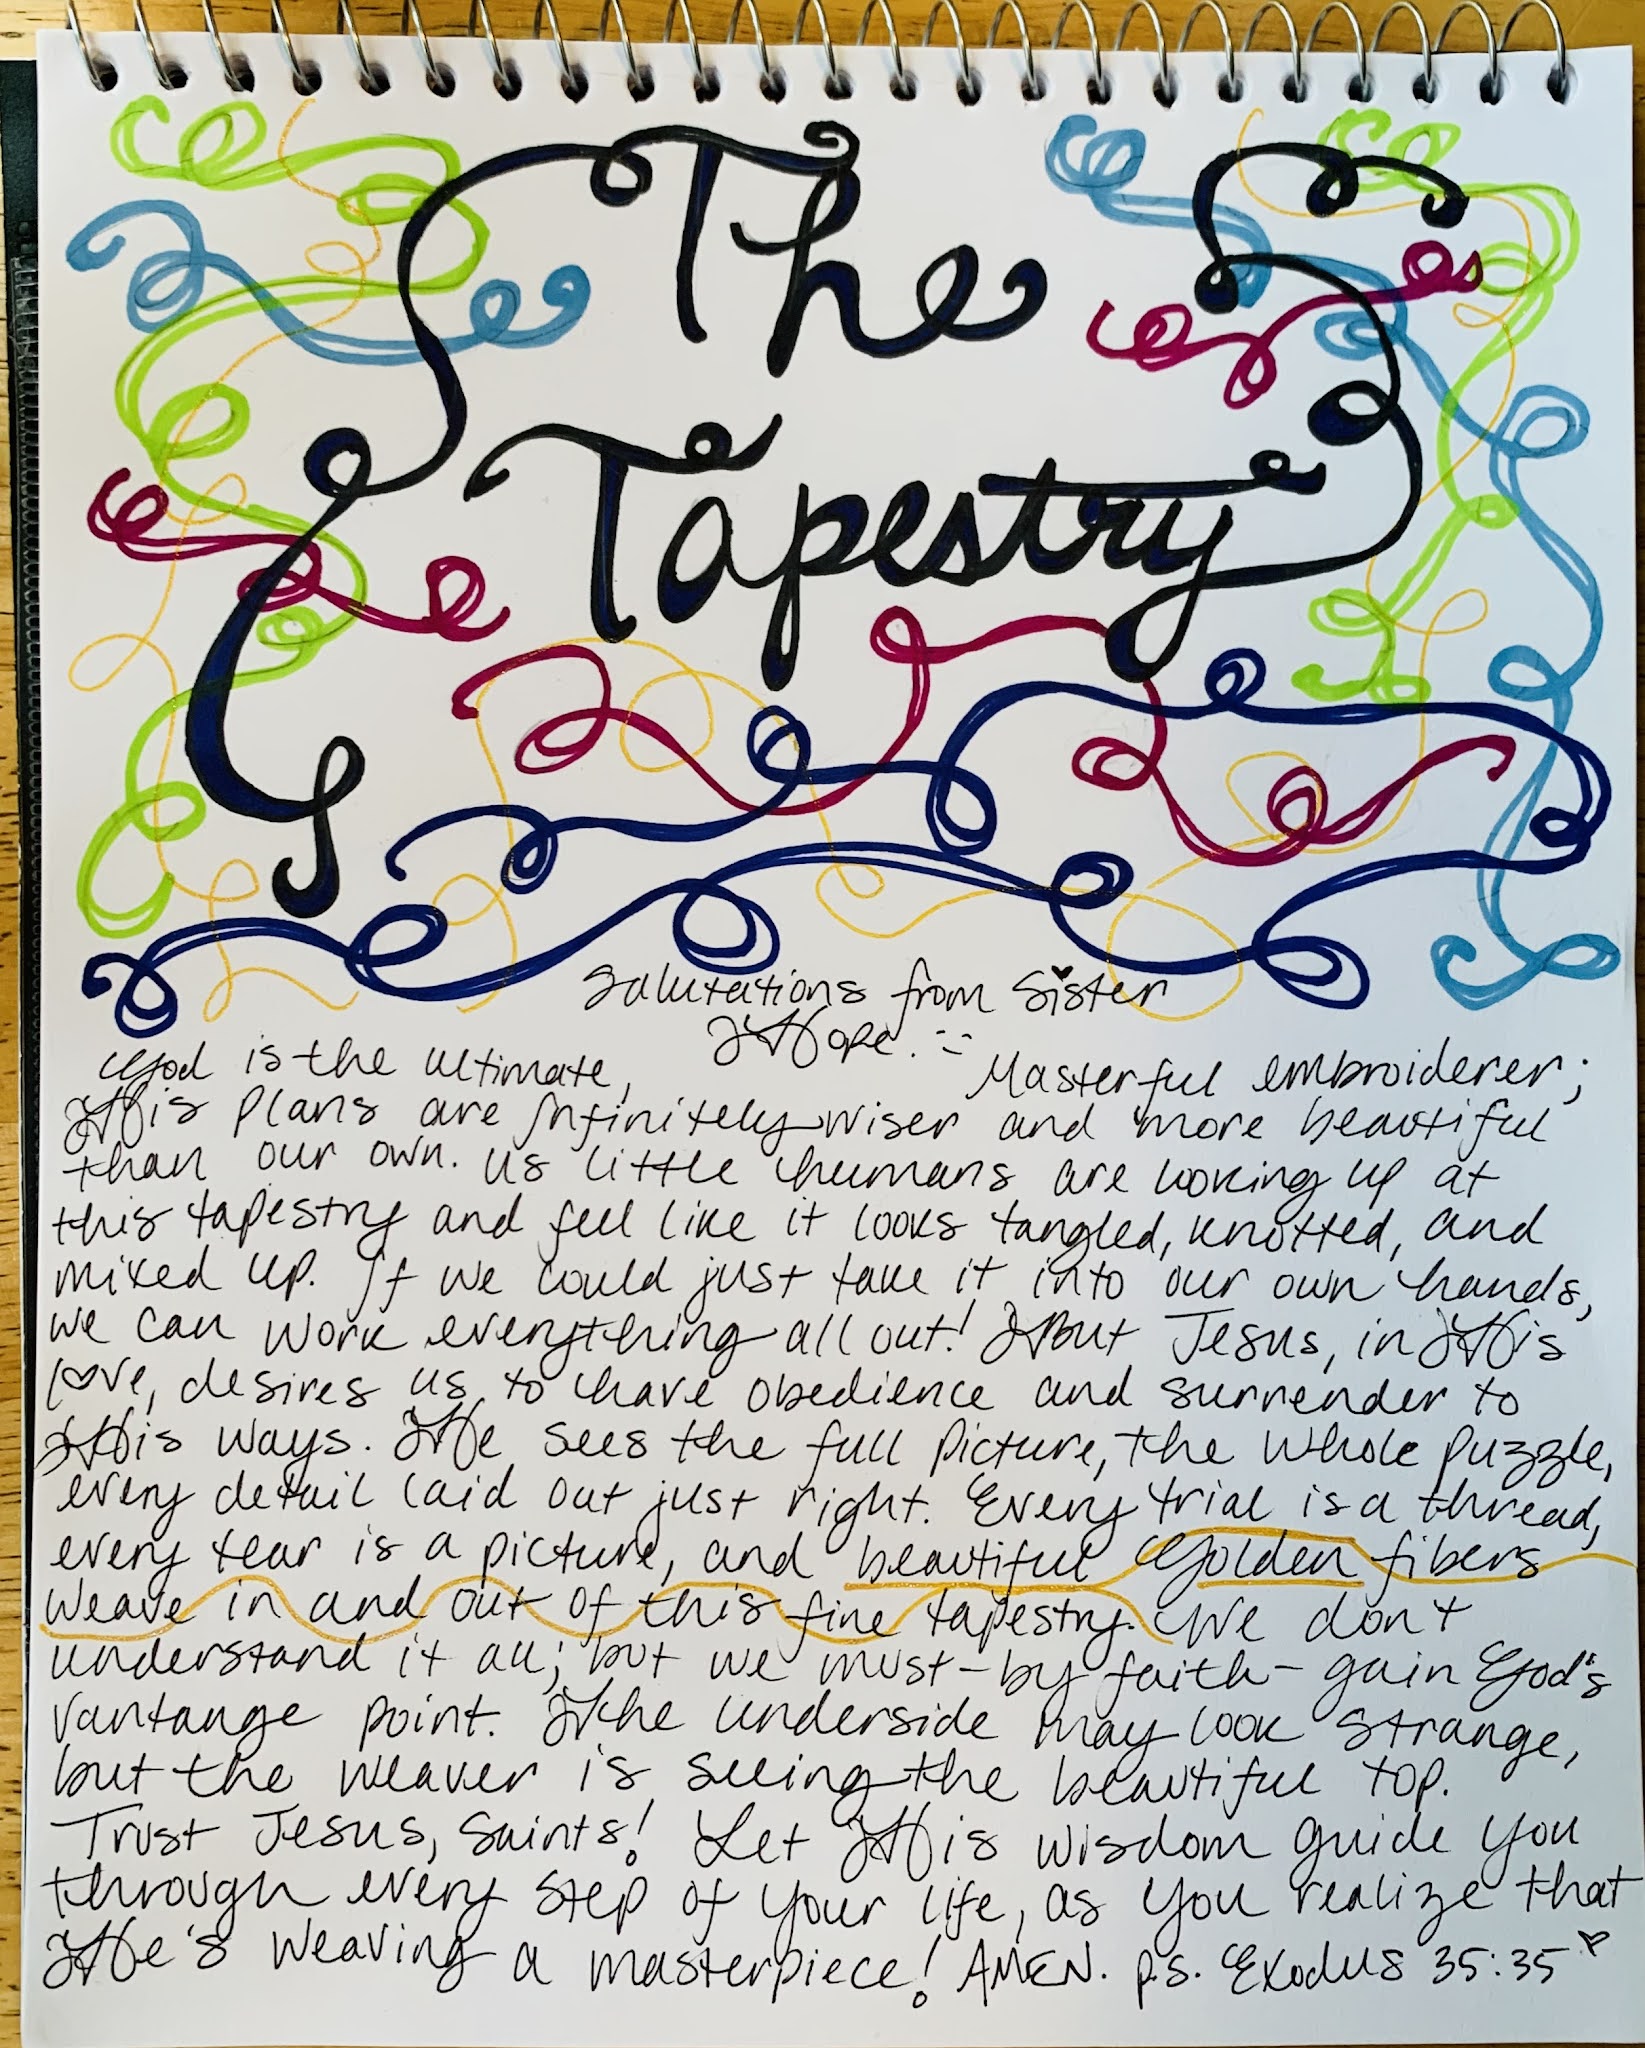 The
Tapestry
Salutations from Sister
Hope. :-)
God is the ultimate, Masterful embroiderer;
His plans are infinitely wiser and more beautiful
than our own. us little humans are looking up at
this tapestry and feel like it looks tangled, knotted, and
mixed up. If we could just take it into our own hands,
we can work everything all out! But Jesus, in His
love, desires us to have obedience and surrender to
His ways. He sees the full picture, the whole puzzle,
every detail laid out just right. Every trial is a thread,
every tear is a picture, and beautiful Golden fibers
weave in and out of this fine tapestry. We don't
understand it all; but we must - by faith - gain God's
vantange point. The underside may look strange,
but the weaver is seeing the beautiful top.
Trust Jesus, Saints! Let His wisdom guide you
through every step of your life, as you realize that
He's weaving a masterpiece! AMEN. p.s. Exodus 35:35 ♡